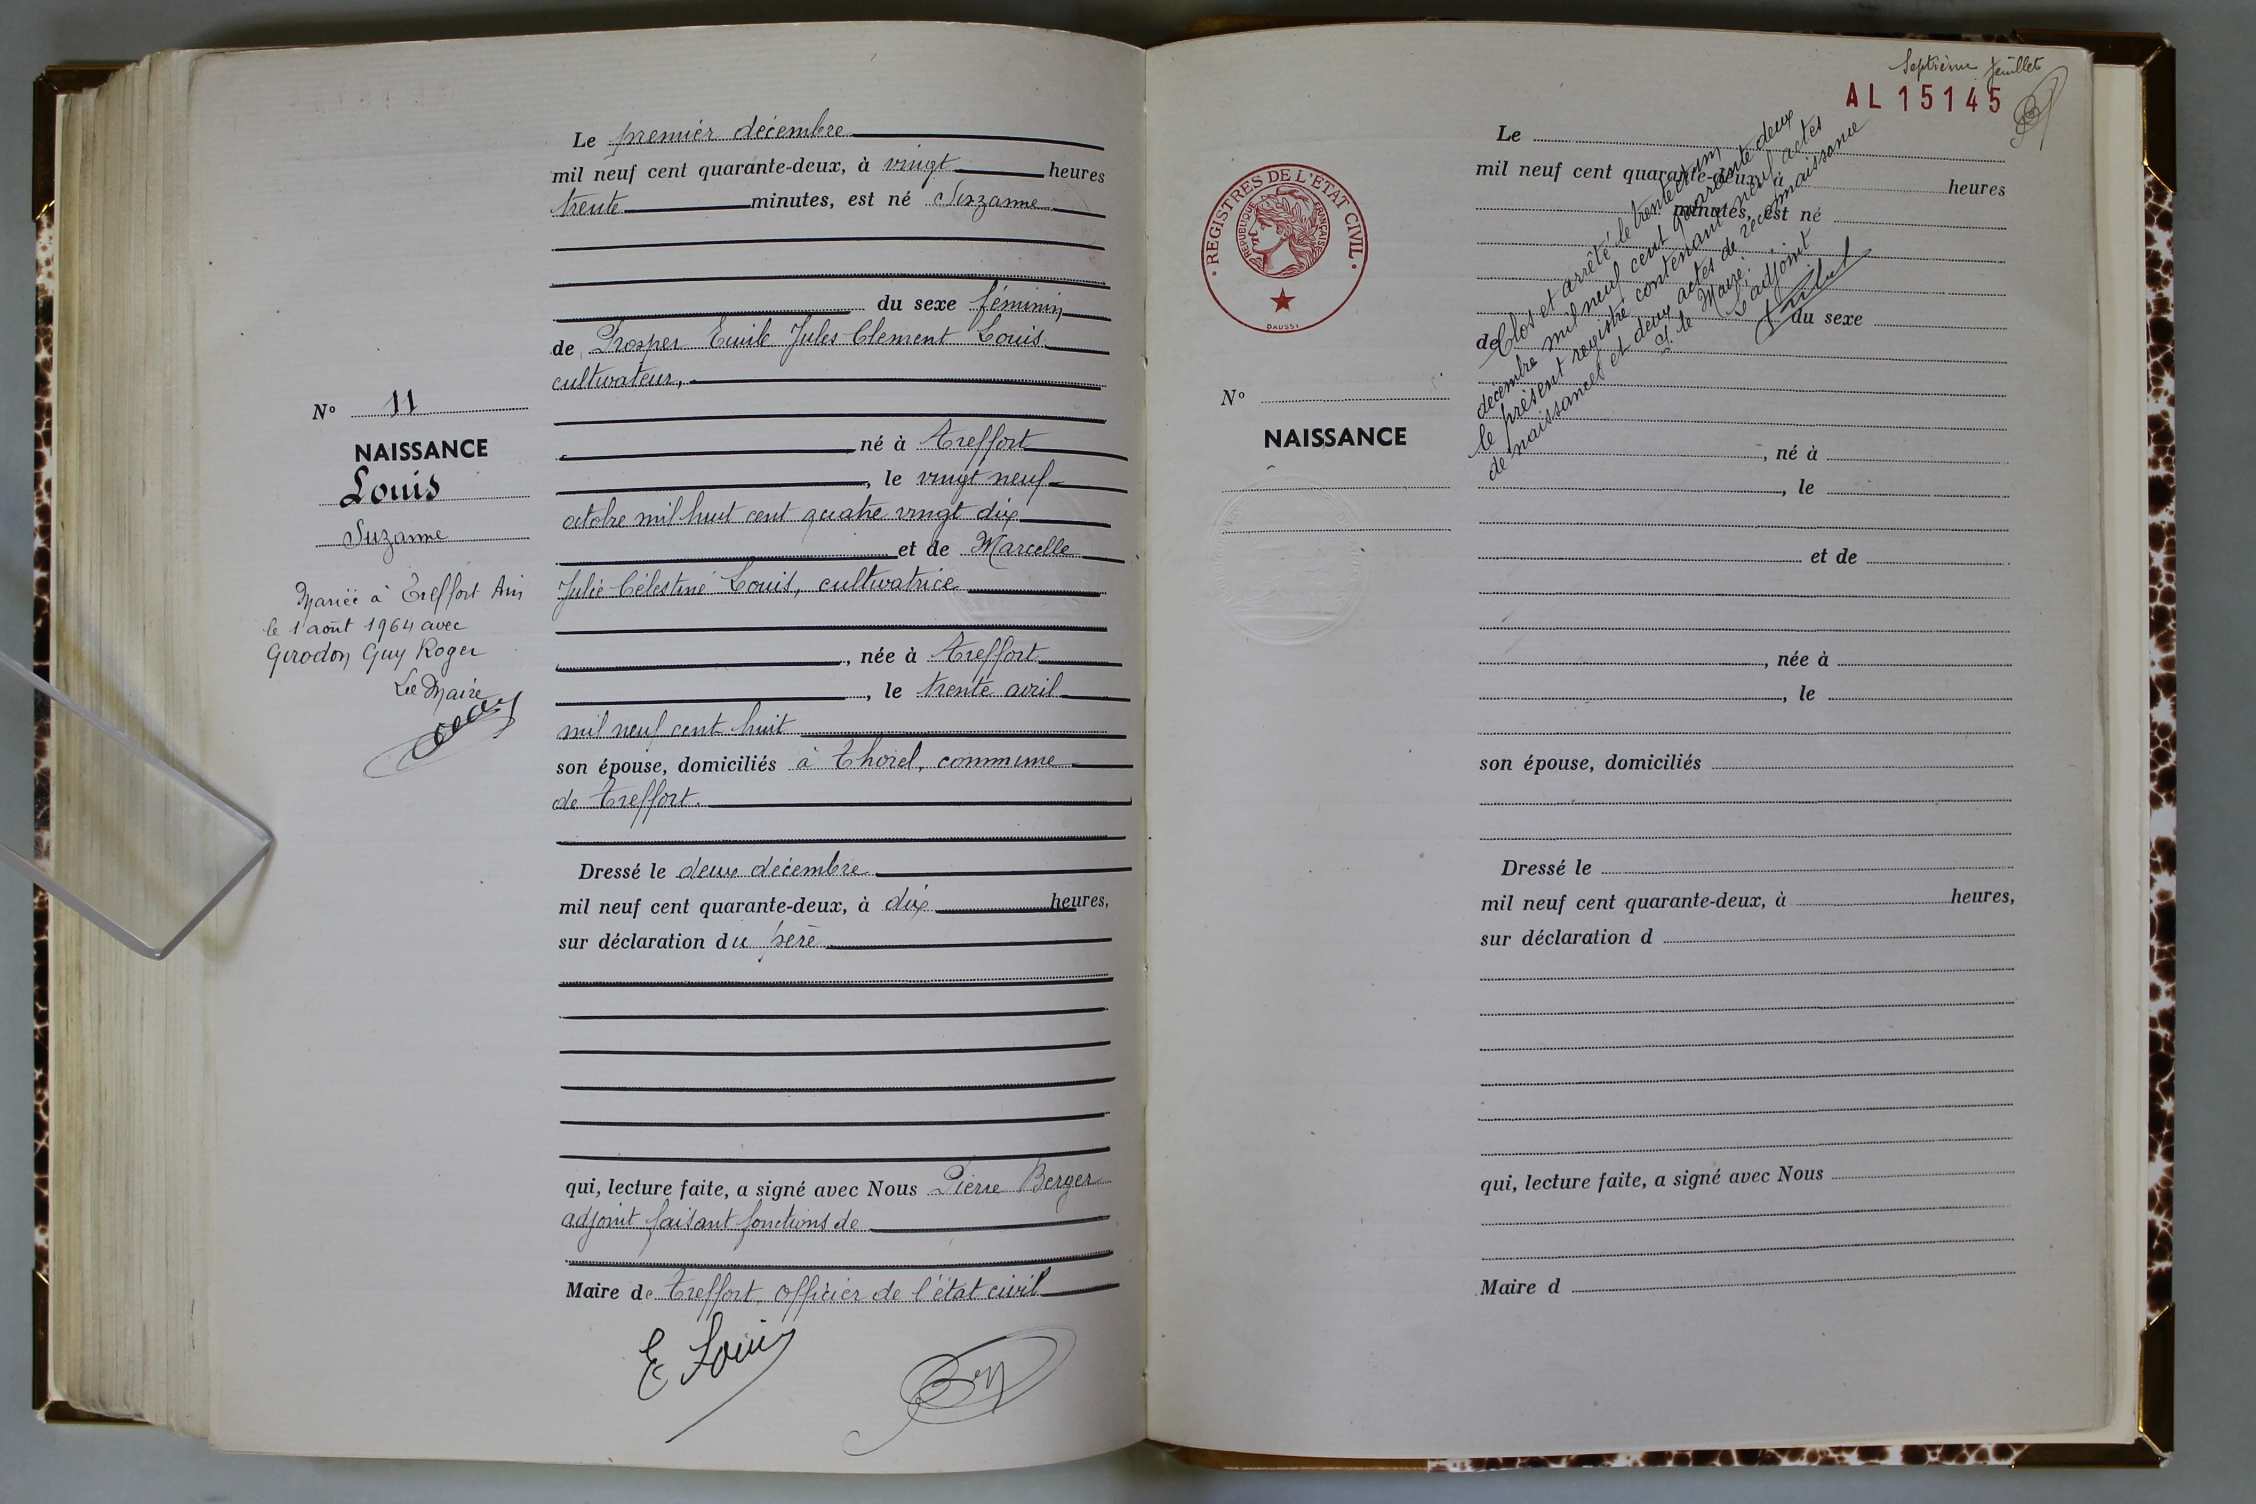 Le premier décembre
mil neuf cent quarante-deux, à vingt heures
trente minutes, est né Suzanne
du sexe féminin
de Prosper Emile Jules Clement Louis
cultivateur,
né à Treffort
, le vingt neuf
octobre mil huit cent quatre vingt dix
et de Marcelle
Julie Célestine Louis, cultivatrice
, née à Treffort
, le trente avril
mil neuf cent huit
son épouse, domiciliés à Thorel, commune
de Treffort.
Dressé le deux décembre
mil neuf cent quarante-deux, à dix heures,
sur déclaration du père
qui, lecture faite, a signé avec Nous Pierre Berger
adjoint faisant fonctions de
Maire de Treffort, officier de l'état civil
E Louis
N° 11
NAISSANCE
Louis
Suzanne
Mariée à Treffort Ain
le 1 août 1964 avec
Girodon Guy Roger
Le Maire
Septième feuillet
AL 15145
REGISTRES DE L'ETAT CIVIL
REPUBLIQUE FRANÇAISE
DAUSSI
N°
NAISSANCE
Le
mil neuf cent quarante-deux, à heures
minutes, est né
du sexe
de
, né à
, le
et de
, née à
, le
son épouse, domiciliés
Dressé le
mil neuf cent quarante-deux, à heures,
sur déclaration d
qui, lecture faite, a signé avec Nous
Maire d
Clos et arrêté le trente et un
décembre mil neuf cent quarante deux
le présent registre contenant neuf actes
de naissances et deux actes de reconnaissance
P. le Maire:
L'adjoint